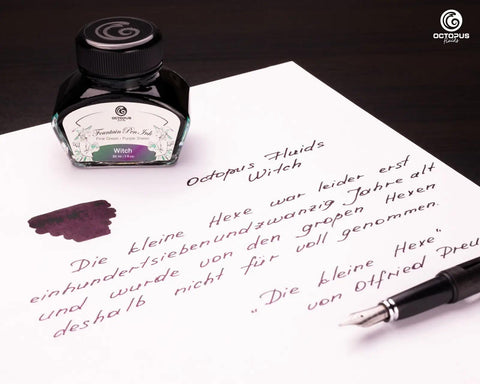 OCTOPUS
fluids
OCTOPUS
Fountain Pen Ink
Witch
Octopus Fluids
Witch
Die kleine Hexe war leider erst
einhundertsiebenundzwanzig Jahre alt
und wurde von den großen Hexen
deshalb nicht für voll genommen.
"Die kleine Hexe"
von Otfried Preu